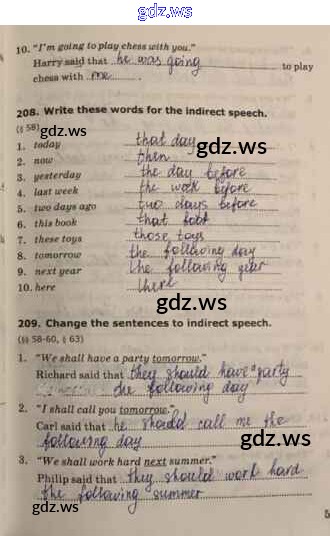 gdz.ws
10. "I'm going to play chess with you."
Harry said that he was going to play
chess with me.
208. Write these words for the indirect speech.
(§ 58) gdz.ws gdz.ws
1. today that day
2. now then
3. yesterday the day before
4. last week the week before
5. two days ago two days before
6. this book that book
7. these toys those toys
8. tomorrow the following day
9. next year the following year
10. here there
gdz.ws
209. Change the sentences to indirect speech.
(§§ 58-60, § 63)
1. "We shall have a party tomorrow."
Richard said that they should have a party
the following day
2. "I shall call you tomorrow."
Carl said that he should call me the
following day
gdz.ws gdz.ws
3. "We shall work hard next summer."
Philip said that they should work hard
the following summer
5
gdz.ws